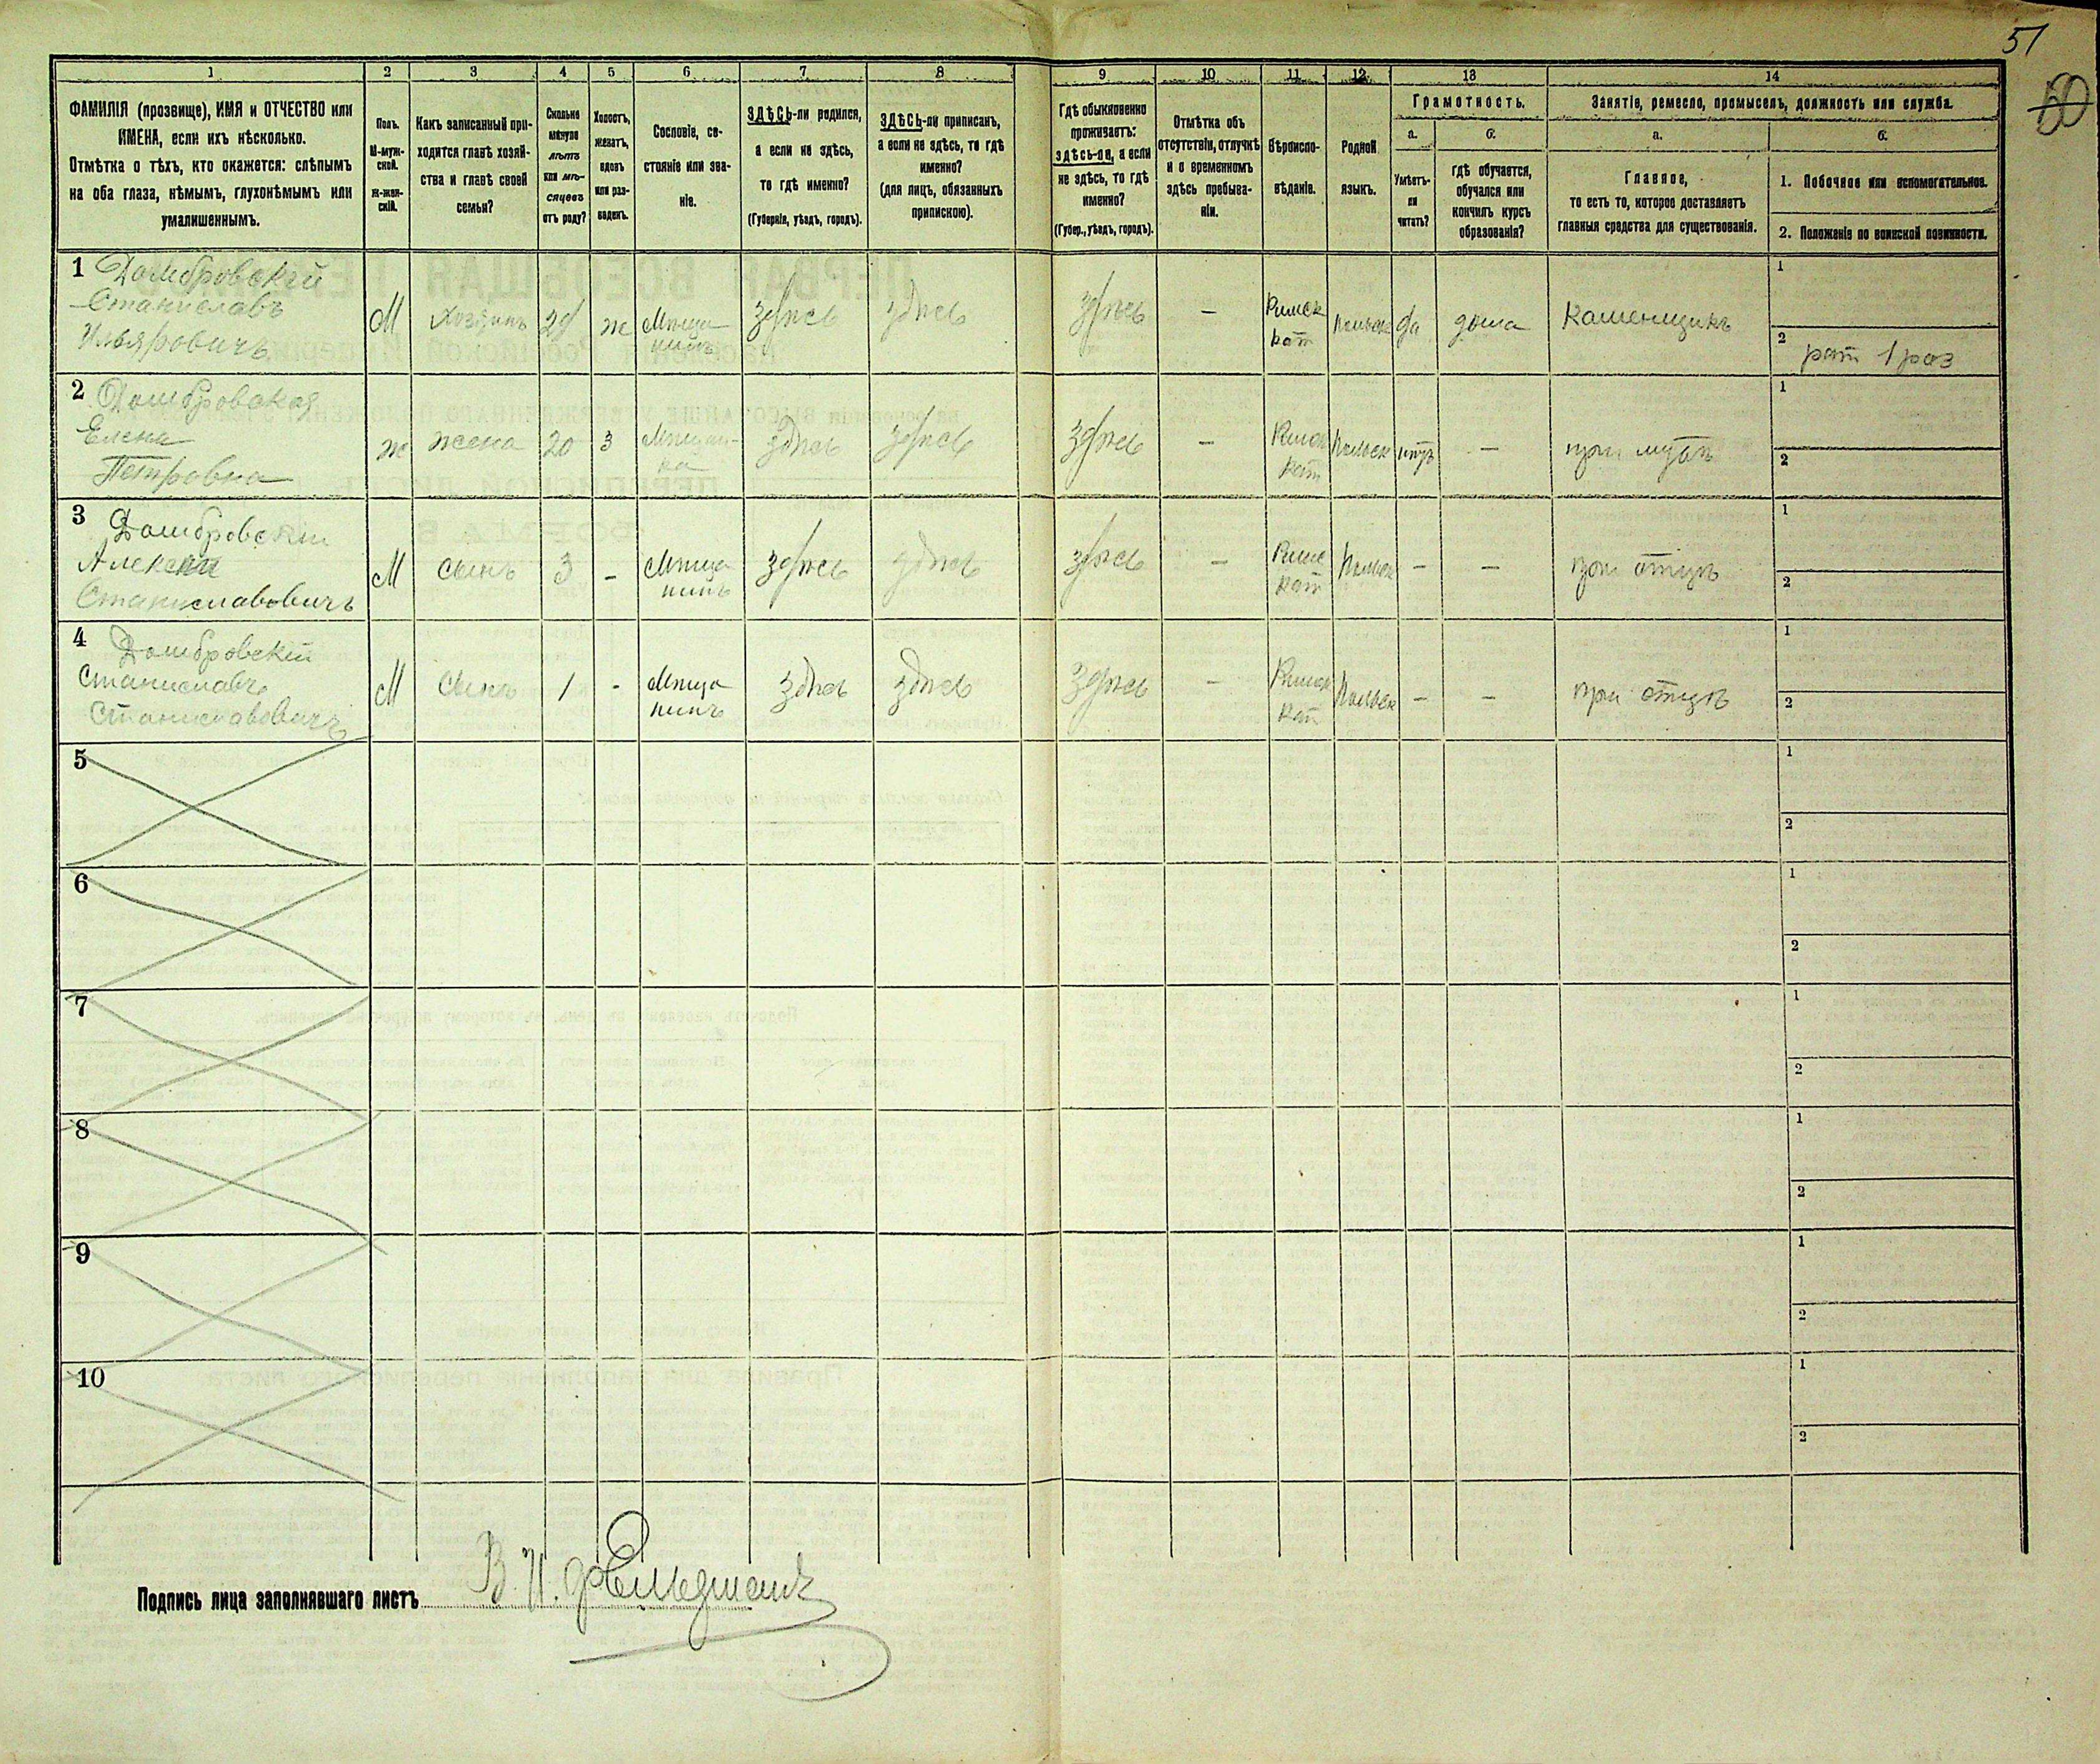 51
60
1
2
3
4
5
6
7
8
9
10
11
12
13
14
ФАМИЛІЯ (прозвище), ИМЯ и ОТЧЕСТВО или
ИМЕНА, если ихъ нѣсколько.
Отмѣтка о тѣхъ, кто окажется: слѣпымъ
на оба глаза, нѣмымъ, глухонѣмымъ или
умалишеннымъ.
Полъ.
М-муж-
ской.
Ж-жен-
скій.
Какъ записанный при-
ходится главѣ хозяй-
ства и главѣ своей
семьи?
Сколько
минуло
лѣтъ
или мѣ-
сяцевъ
отъ роду?
Холостъ,
женатъ,
вдовъ
или раз-
веденъ.
Сословіе, со-
стояніе или зва-
ніе.
ЗДѢСЬ-ли родился,
а если не здѣсь,
то гдѣ именно?
(Губернія, уѣздъ, городъ).
ЗДѢСЬ-ли приписанъ,
а если не здѣсь, то гдѣ
именно?
(для лицъ, обязанныхъ
припискою).
Гдѣ обыкновенно
проживаетъ:
здѣсь-ли, а если
не здѣсь, то гдѣ
именно?
(Губер., уѣздъ, городъ).
Отмѣтка объ
отсутствіи, отлучкѣ
и о временномъ
здѣсь пребыва-
ніи.
Вѣроиспо-
вѣданіе.
Родной
языкъ.
Грамотность.
а.
Умѣетъ-
ли
читать?
б.
гдѣ обучается,
обучался или
кончилъ курсъ
образованія?
Занятіе, ремесло, промыселъ, должность или служба.
а.
Главное,
то есть то, которое доставляетъ
главныя средства для существованія.
б.
1. Побочное или вспомогательное.
2. Положеніе по воинской повинности.
1 Домбровскій
Станиславъ
М хозяинъ ж Мѣща
нинъ здѣсь здѣсь здѣсь – Римск
кат польск да дома каменщикъ
1
2 рат 1 раз
2 Домбровская
Елена
Петровна
ж жена 20 з Мѣщан-
ка здѣсь здѣсь здѣсь – Римск
кат Польск нѣтъ – при мужѣ
1
2
3 Домбровскій
Алексѣй
Станиславовичъ
М сынъ 3 – Мѣща
нинъ здѣсь здѣсь здѣсь – Римск
кат Польск – – при отцѣ
1
2
4 Домбровскій
Станиславъ
Станиславовичъ
М сынъ 1 – Мѣща
нинъ здѣсь здѣсь здѣсь – Римск
кат Польск – – при отцѣ
1
2
5
1
2
6
1
2
7
1
2
8
1
2
9
1
2
10
1
2
Подпись лица заполнявшаго листъ В. И. Фельдманъ